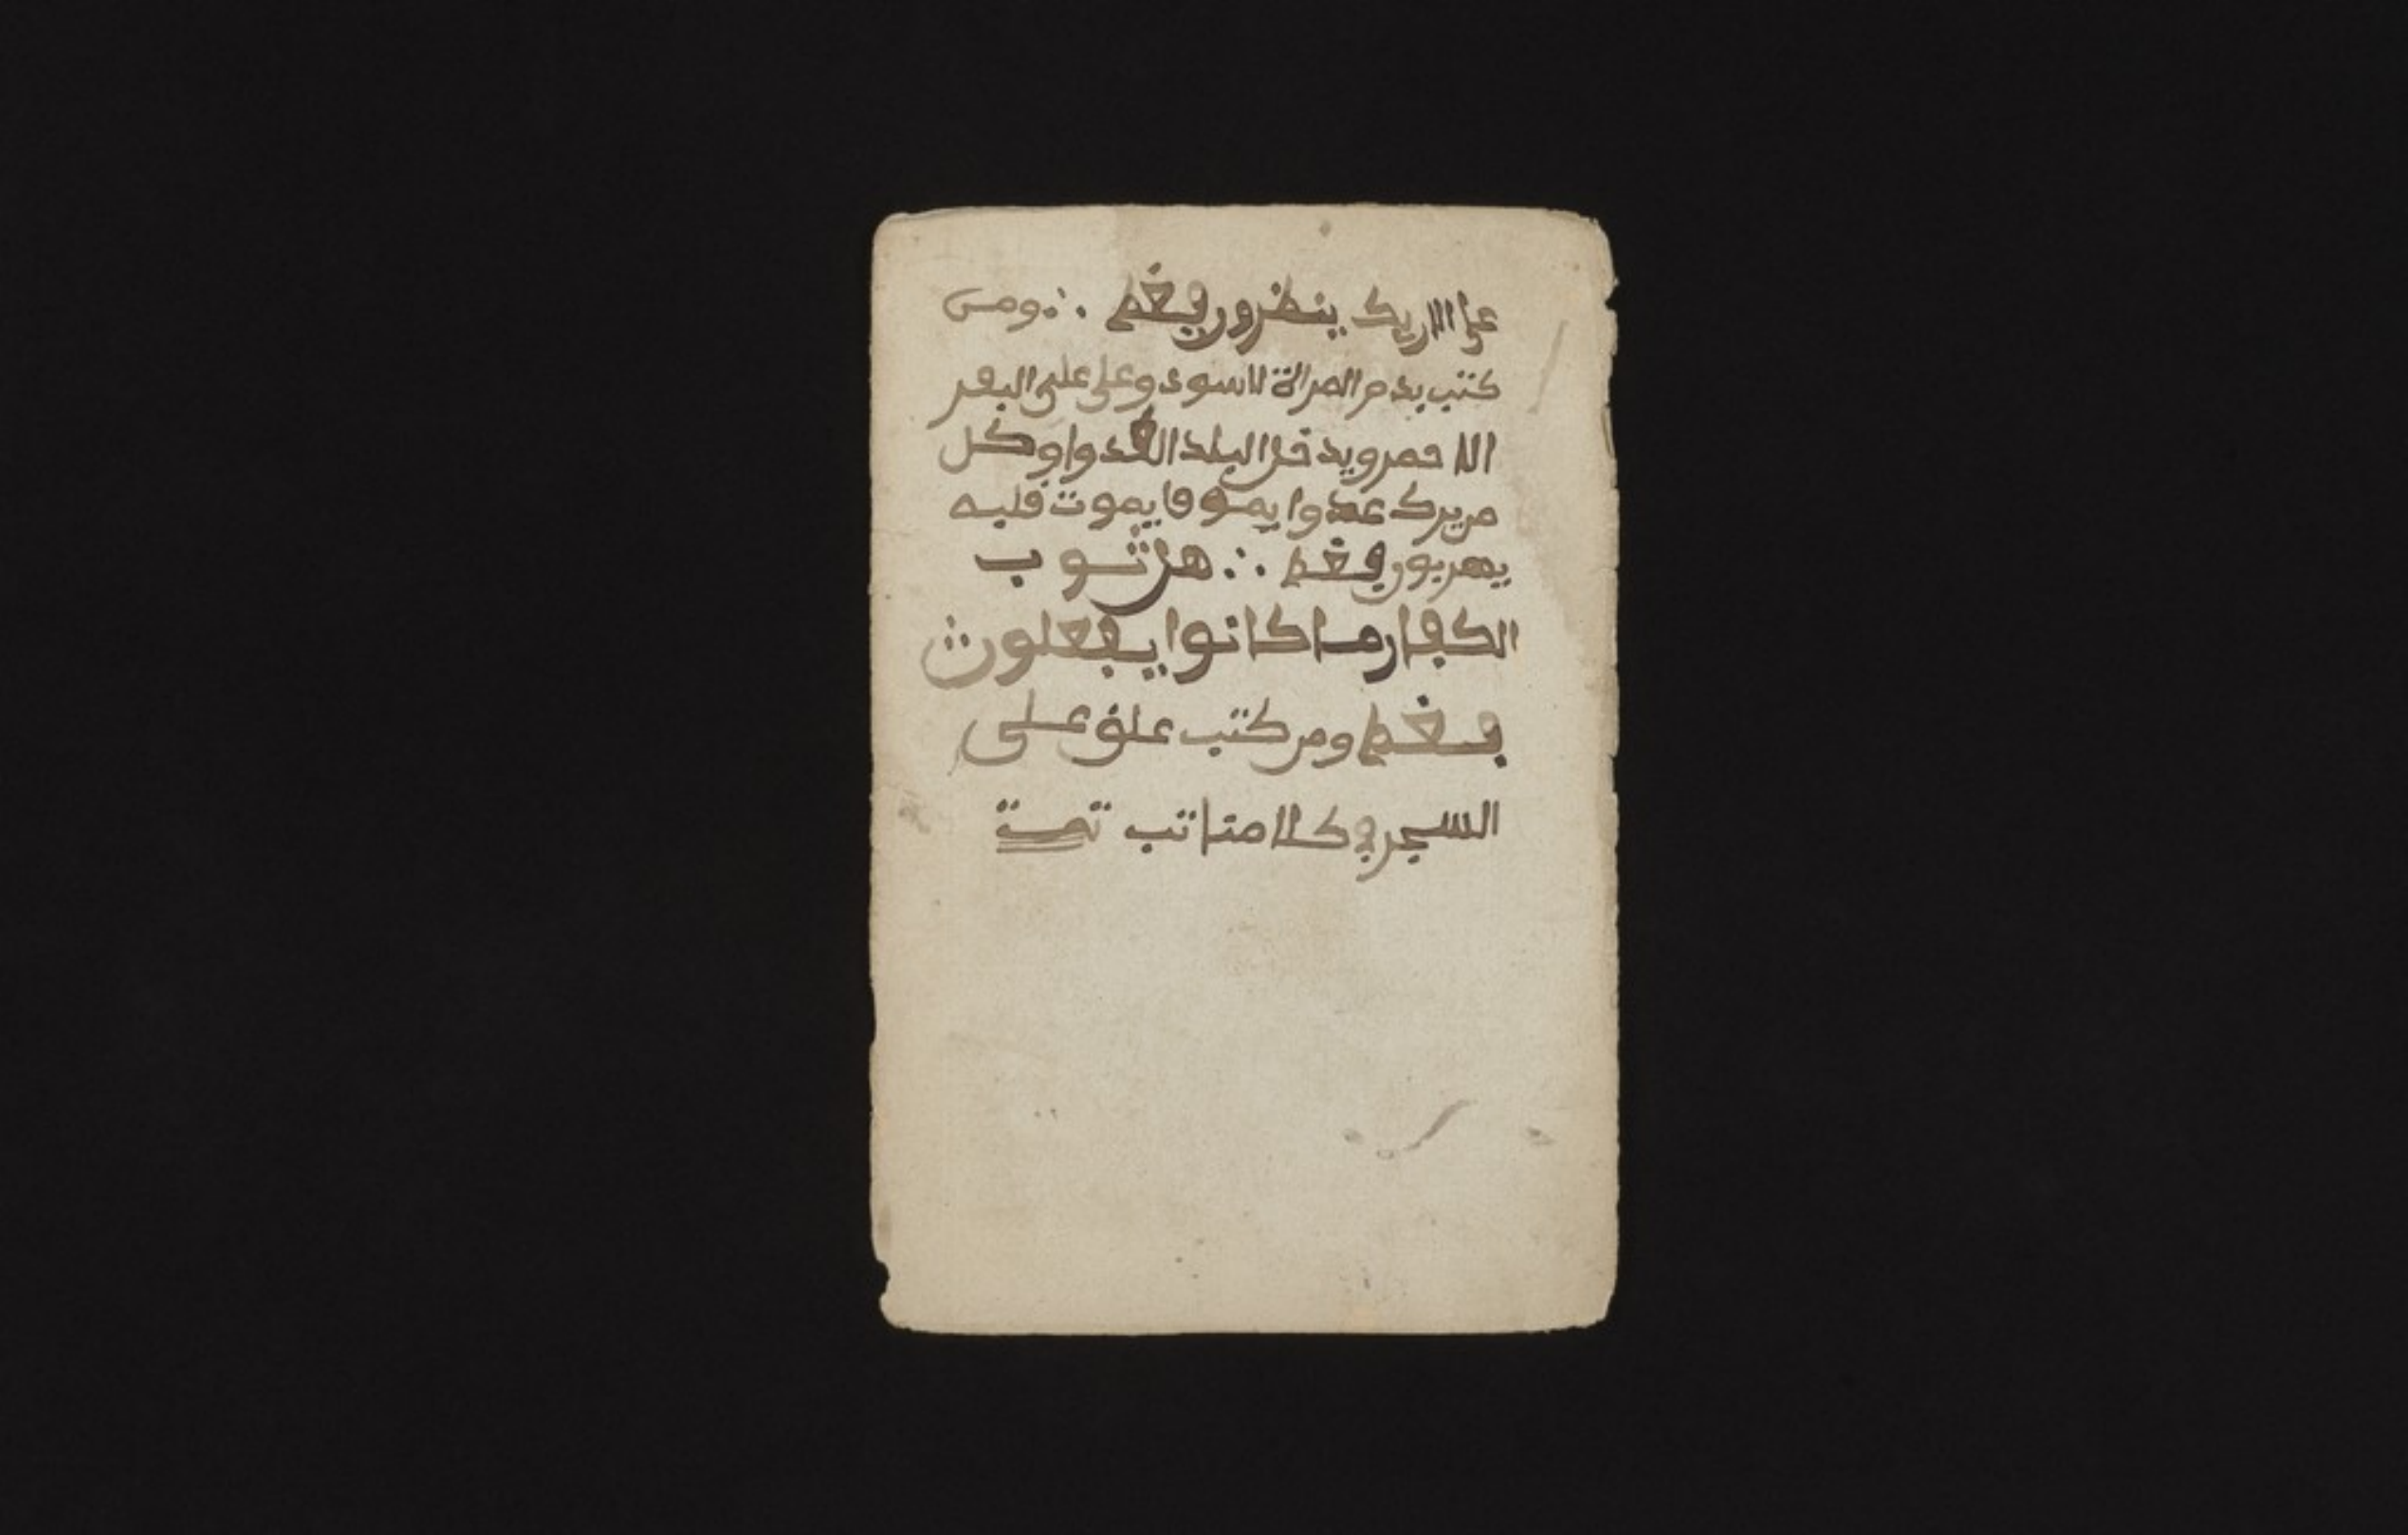 على الاريك ينظرون فغم ∴ ومن
كتب بدم المراة لاسود وعلى على البقر
الاحمر ويدخل البلد العدوا وكل
من يرك عدوا يموفا يموت قلبه
يهربون فغم ∴ هل ثوب
الكفار ما كانوا يفعلون
فغم ومن كتب علق على
السجر في كلا متاتب تمت